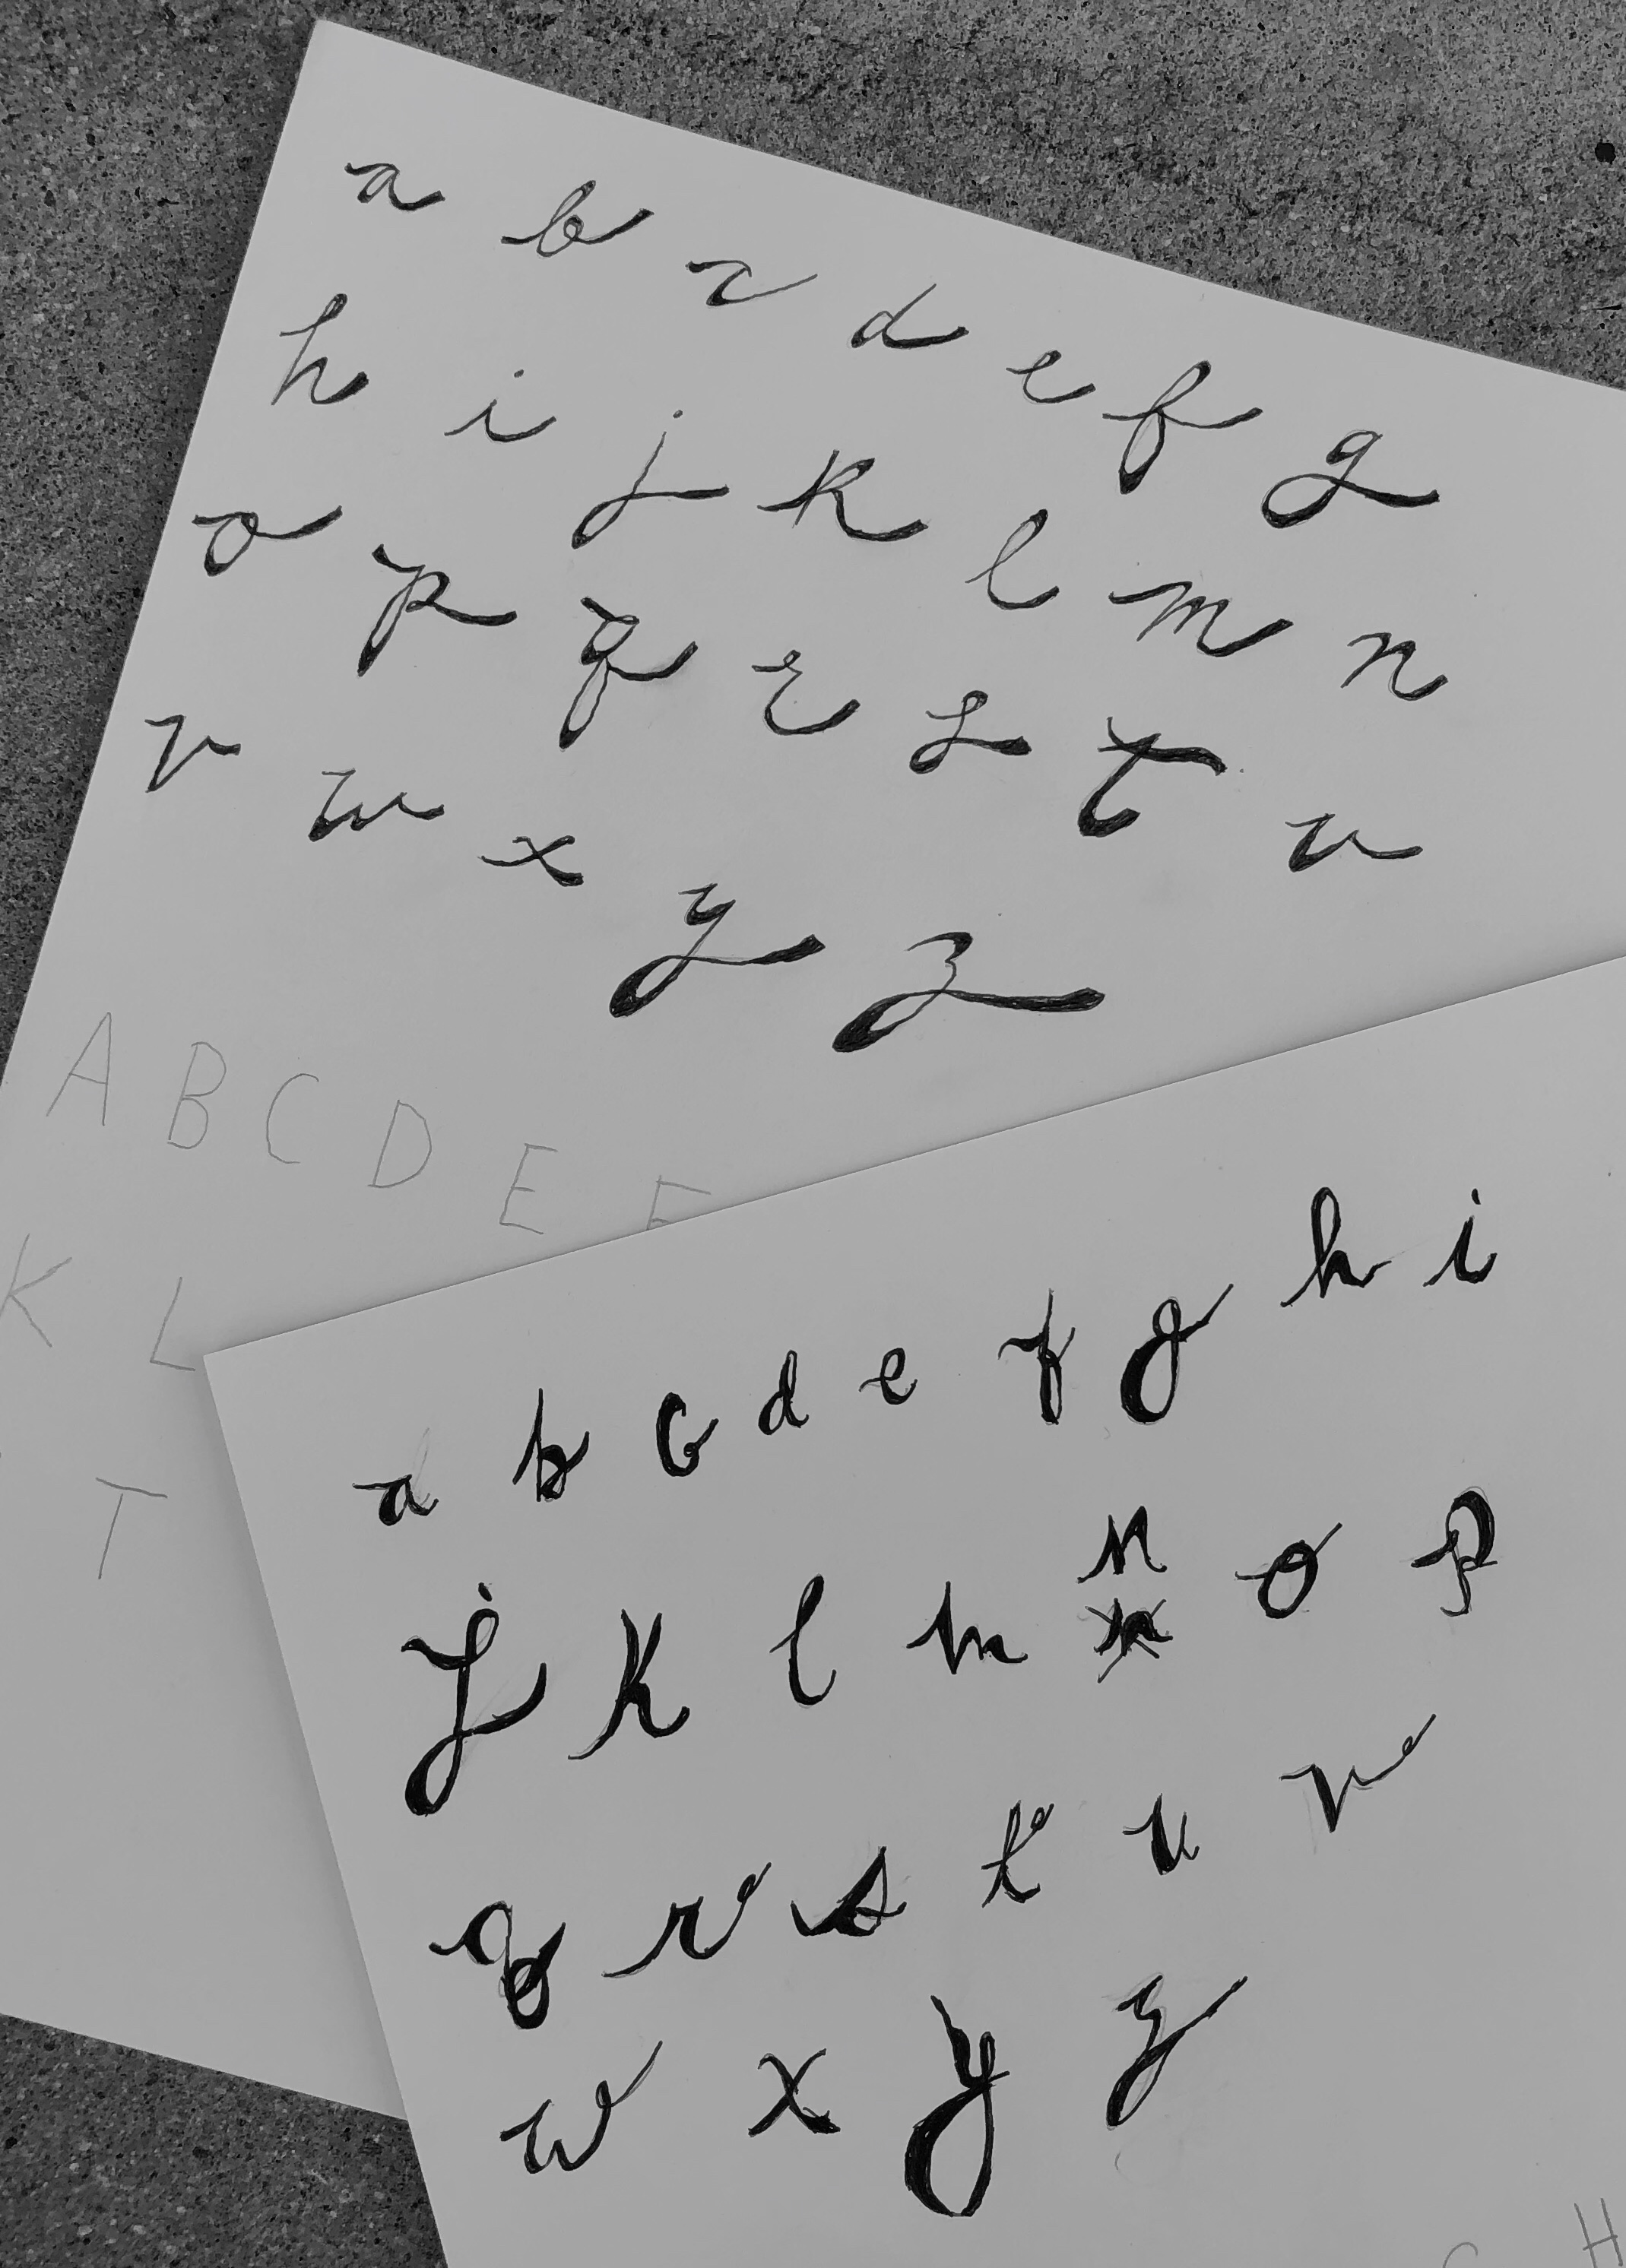 a b c d e f g
h i j k l m n
o p q r s t u
v w x y z
A B C D E F
K L
T
a b c d e f g h i
j k l m n o p
q r s t u v
w x y z
G H